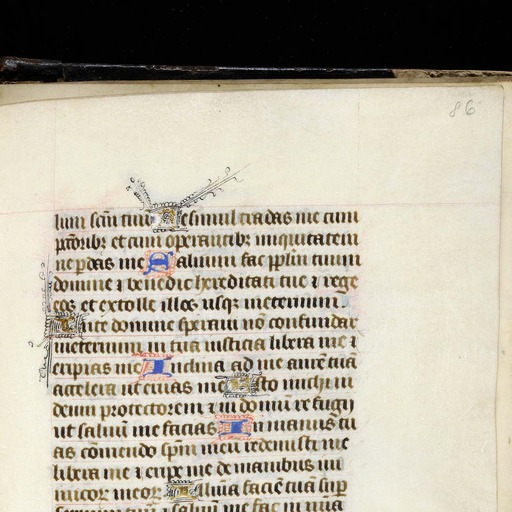 86
lum scm tuu Ne simul tradas me cum
pctoribz et cum operantibz iniquitatem
ne pdas me Saluum fac pplm tuum
domine ⁊ benedic hereditati tue ⁊ rege
eos et extolle illos usqz in eternum .
In te domine speraui nō confundar
in eternum in tua iusticia libera me ⁊
eripias me Inclina ad me aurē tuā
accelera ut eruas me Esto michi in
deum protectorem ⁊ in domū refugij
ut saluū me facias In manus tu
as comendo spm meū redemisti me
libera me ⁊ eripe me de manibus ini
micor meor Illuīa faciē tuā sup
seruum tuū ⁊ saluū me fac in mīa